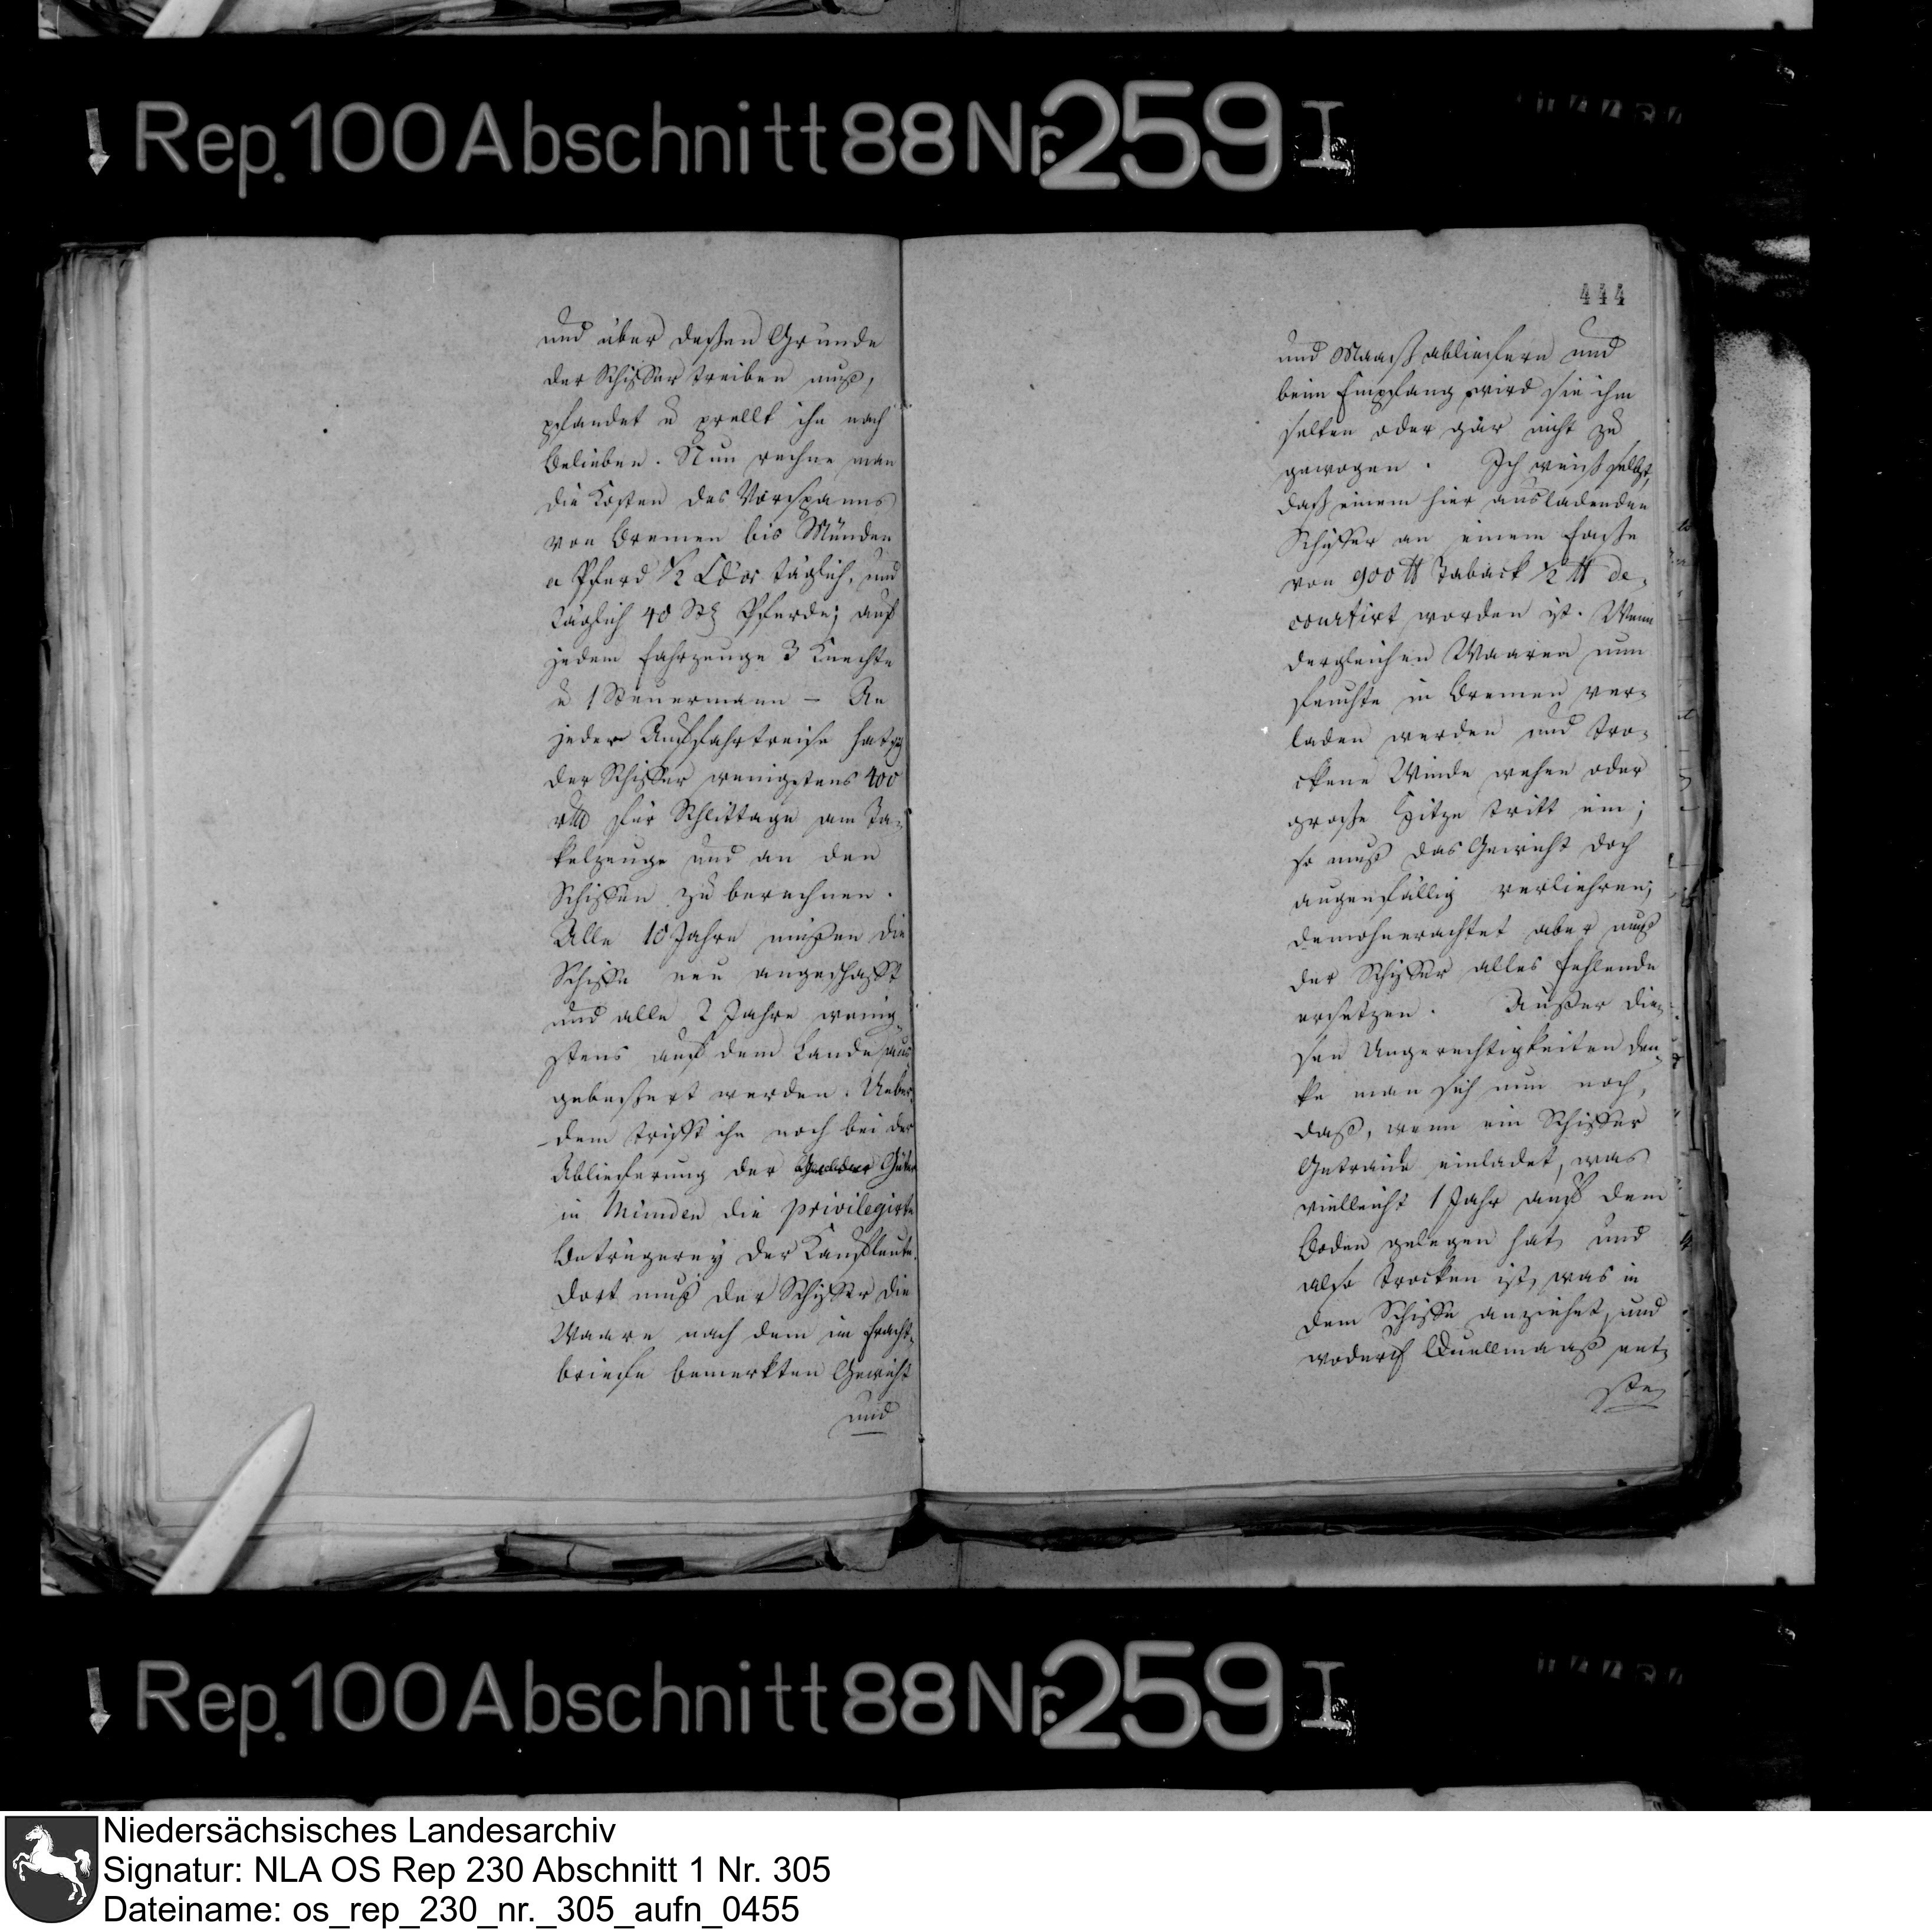 Rep. 100 Abschnitt 88 Nr. 259 I
und über deßen Grunde
der Schiffer treiben muß,
pfandet u prellt ihn nach
Belieben. Nun rechne man
die Kosten des Vorspanns
von Bremen bis Münden
a Pferd ½ Ldor täglich, und
täglich 40 Stk Pferde; auf
jedem Fahrzeuge 3 Knechte
u 1 Steuermann – An
jeder Auffahrtreise hat
der Schiffer wenigstens 400
für Schlittage am Ta-
kelzeuge und an den
Schiffen zu berechnen.
Alle 10 Jahre müßen die
Schiffe neu angeschafft
und alle 2 Jahre wenig-
stens auf dem Lande aus
gebeßert werden. Ueber-
dem trifft ihn noch bei der
Ablieferung der Güter
in Münden die privilegirte
Betrügerey der Kaufleute.
Dort muß der Schiffer die
Waare nach dem im Fracht-
briefe bemerkten Gewicht
und
444
und Maaß abliefern und
beim Empfang wird sie ihm
selten oder gar nicht zu
gewogen. Ich weiß selbst,
daß einem hier ausladenden
Schiffer an einem Faße
von 900 ℔ Taback ½ ℔ de-
courtirt worden ist. Wenn
dergleichen Waaren nun
feuchte in Bremen ver-
laden werden und tro-
ckene Winde wehen oder
große Hitze tritt ein;
so muß das Gewicht doch
augenfällig verliehren;
demohnerachtet aber muß
der Schiffer alles Fehlende
ersetzen. Außer die-
sen Ungerechtigkeiten den-
ke man sich nun noch,
daß, wenn ein Schiffer
Getraide einladet, was
vielleicht 1 Jahr auf dem
Boden gelegen hat und
also trocken ist, was in
dem Schiffe anziehet, und
wodurch Quellmaaß ent-
ste-
Rep. 100 Abschnitt 88 Nr. 259 I
Niedersächsisches Landesarchiv
Signatur: NLA OS Rep 230 Abschnitt 1 Nr. 305
Dateiname: os_rep_230_nr._305_aufn_0455